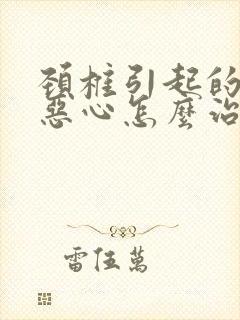 頚椎引起的
惡心怎麼治
雷伍萬